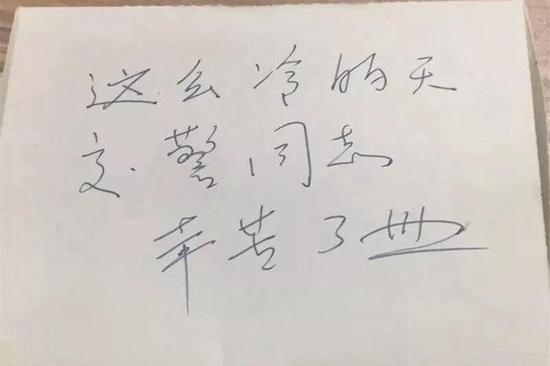 这么冷的天
交警同志
辛苦了